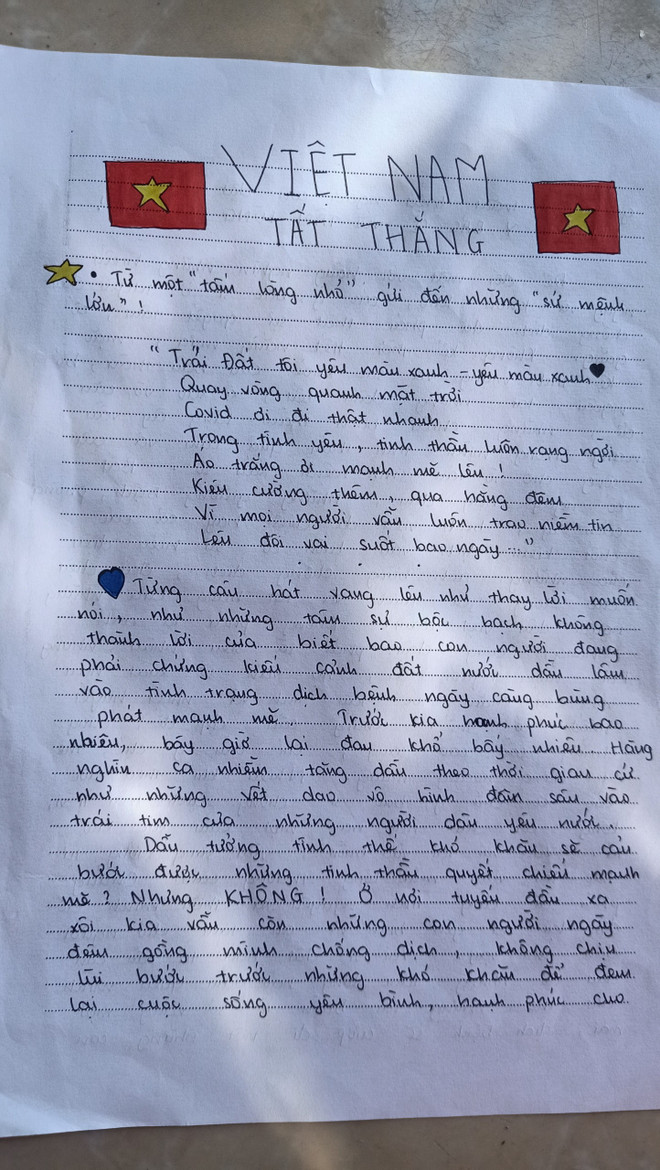 VIỆT NAM
TẤT THẮNG
• Từ một "tấm lòng nhỏ" gửi đến những "sứ mệnh
lớn" !
"Trái Đất tôi yêu màu xanh - yêu màu xanh
Quay vòng quanh mặt trời
Covid ơi đi thật nhanh
Trong tình yêu, tinh thần luôn rạng ngời
Áo trắng ơi mạnh mẽ lên !
Kiên cường thêm, qua hằng đêm
Vì mọi người vẫn luôn trao niềm tin
Lên đôi vai suốt bao ngày..."
Từng câu hát vang lên như thay lời muốn
nói, như những tâm sự bộc bạch không
thành lời của biết bao con người đang
phải chứng kiến cảnh đất nước dần lâm
vào tình trạng dịch bệnh ngày càng bùng
phát mạnh mẽ. Trước kia hạnh phúc bao
nhiêu, bây giờ lại đau khổ bấy nhiêu. Hàng
nghìn ca nhiễm tăng dần theo thời gian cứ
như những vết dao vô hình đâm sâu vào
trái tim của những người dân yêu nước.
Dẫu tưởng tình thế khó khăn sẽ cản
bước được những tinh thần quyết chiến mạnh
mẽ ? Nhưng KHÔNG ! Ở nơi tuyến đầu xa
xôi kia vẫn còn những con người ngày
đêm gồng mình chống dịch, không chịu
lùi bước trước những khó khăn để đem
lại cuộc sống yên bình, hạnh phúc cho